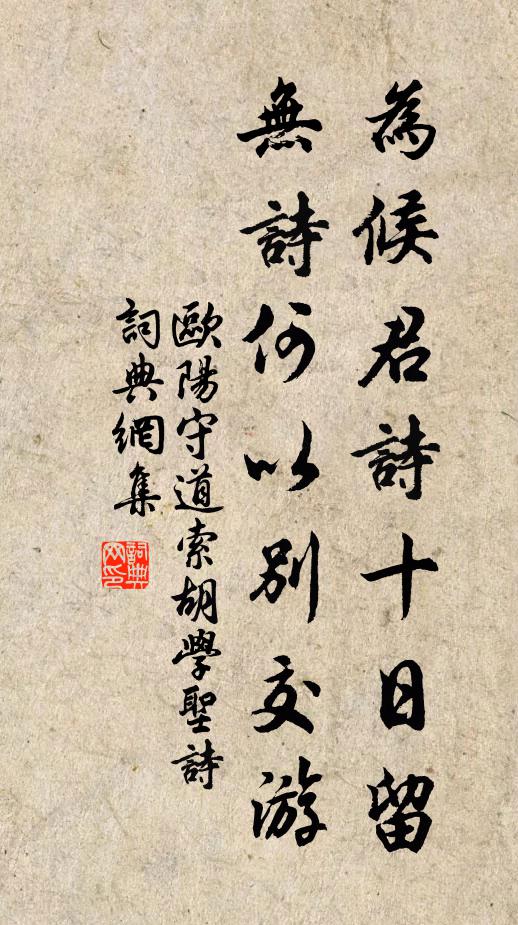 為候君詩十日留
無詩何以別交游
歐陽守道索胡學聖詩
詞典網集
詞典网印